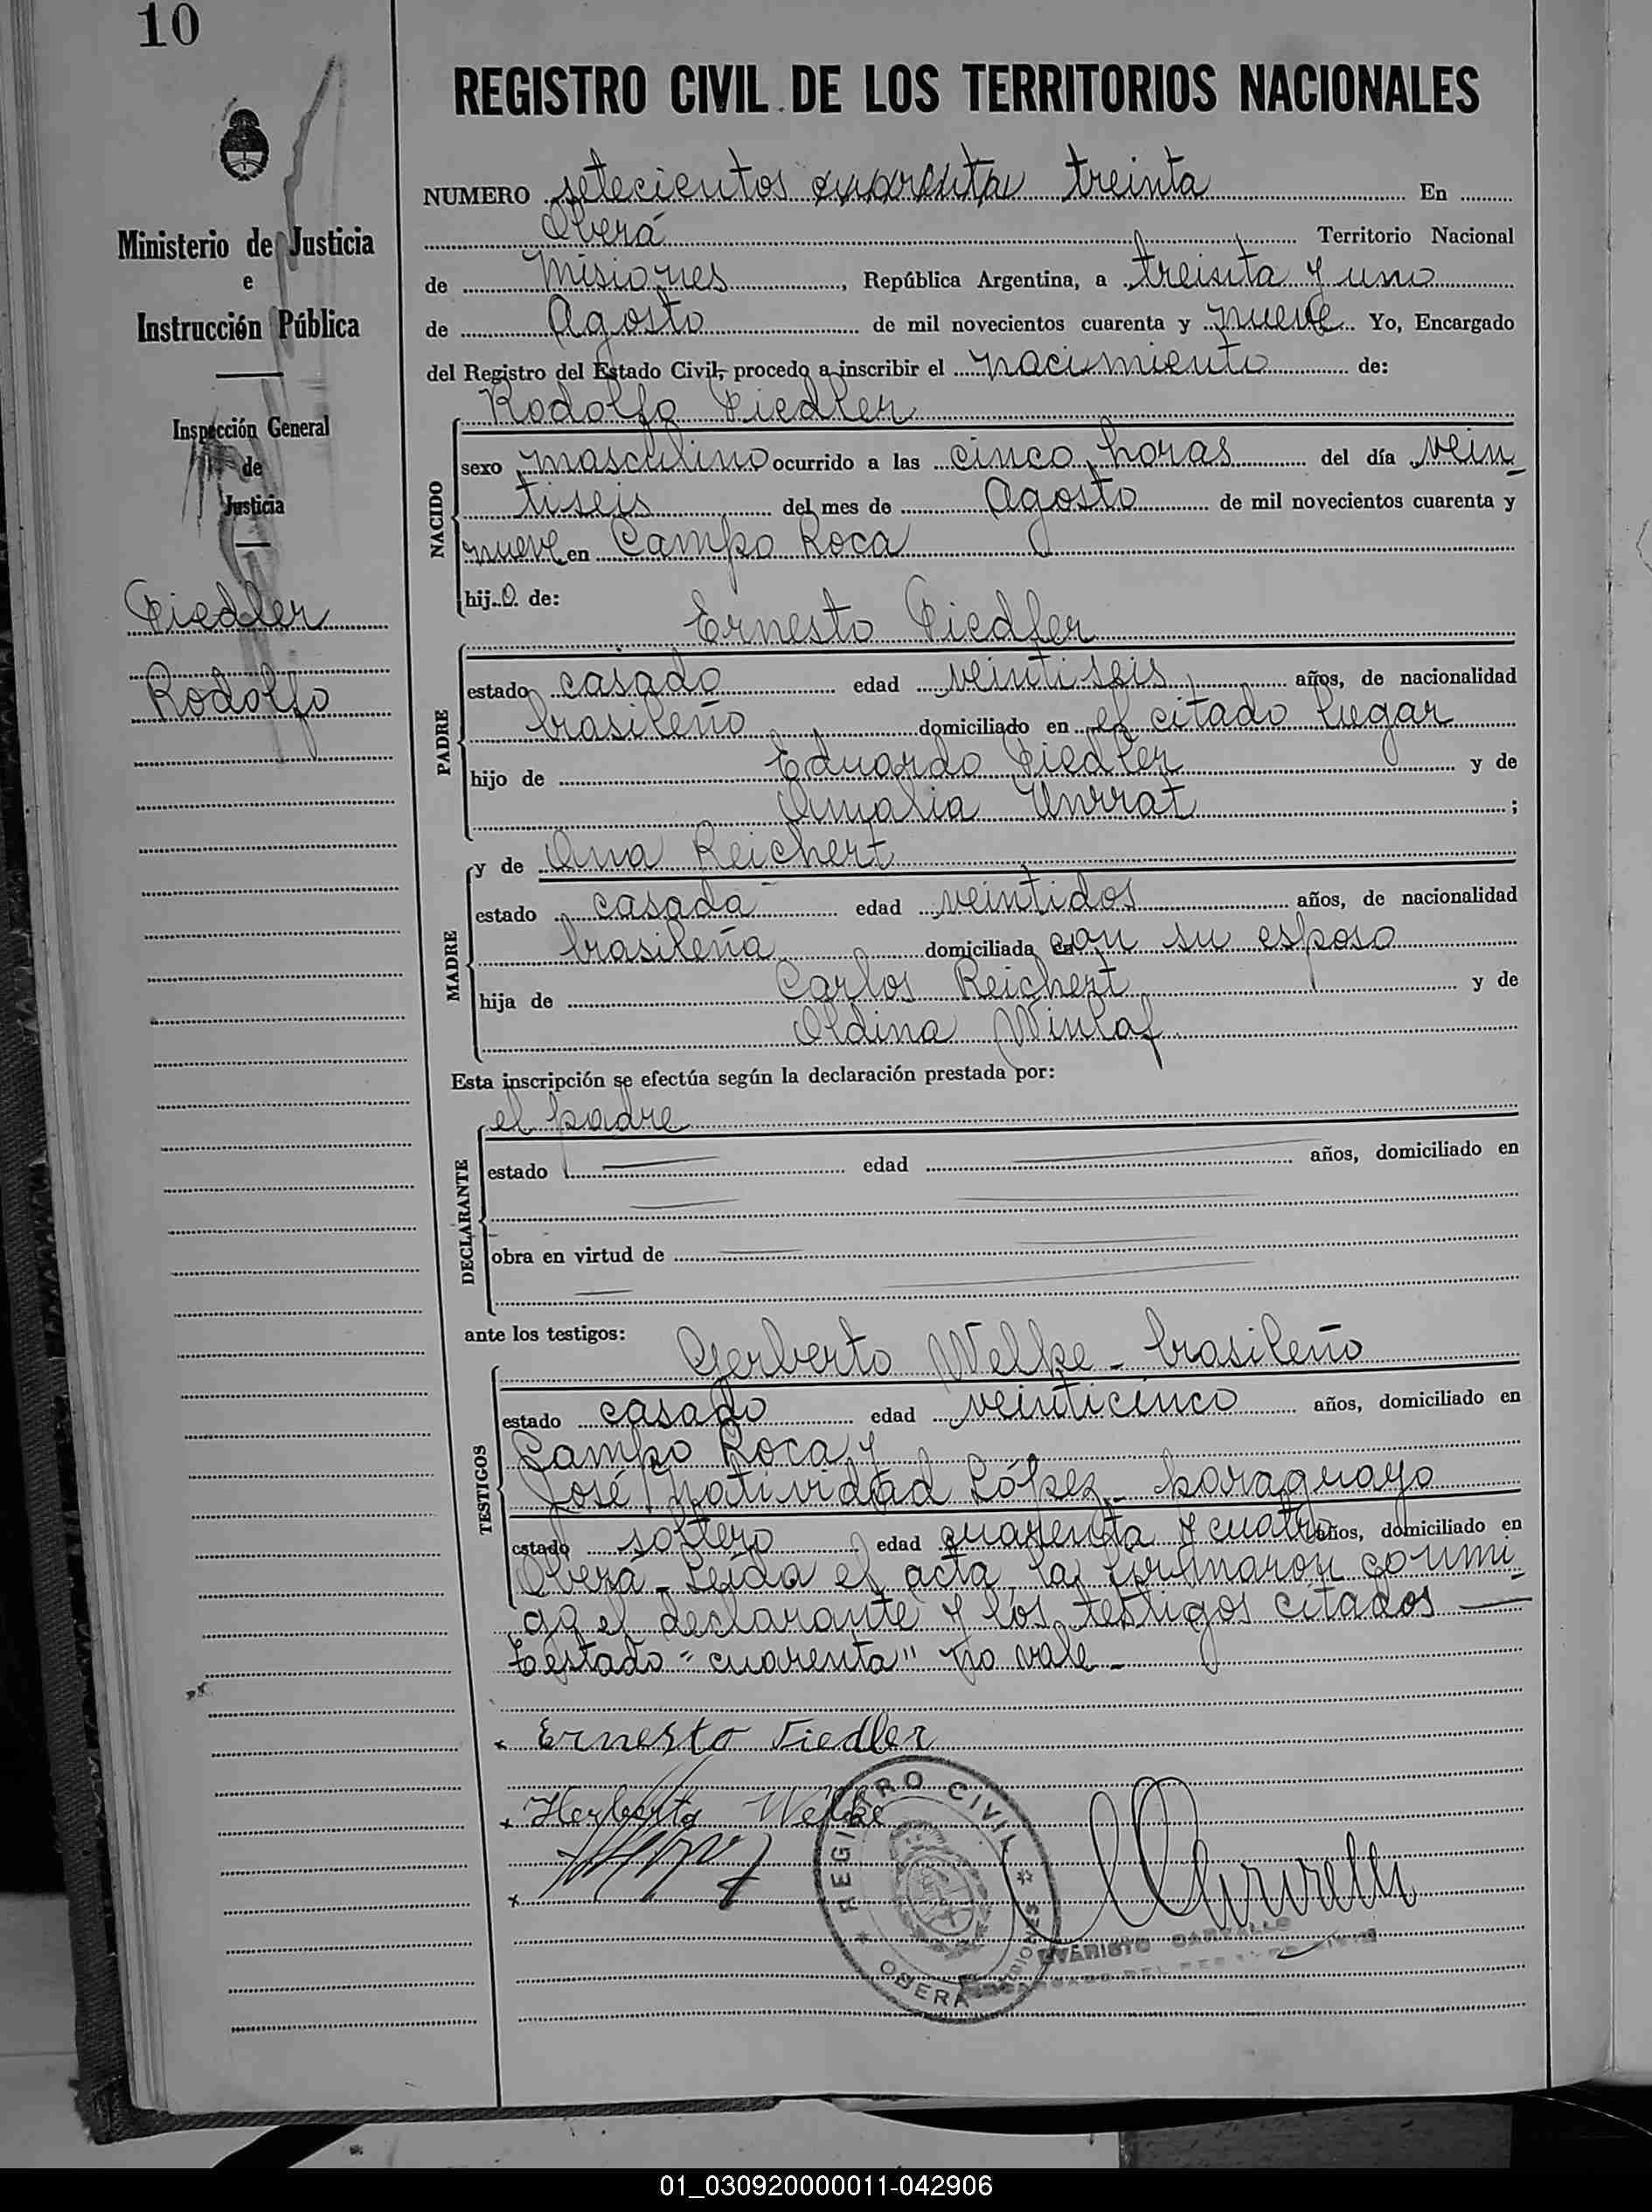 10
REGISTRO CIVIL DE LOS TERRITORIOS NACIONALES
Ministerio de Justicia
e
Instrucción Pública
Inspección General
de
Justicia
Fiedler
Rodolfo
NUMERO setecientos cuarenta treinta En
Oberá Territorio Nacional
de Misiones, República Argentina, a treinta y uno
de Agosto de mil novecientos cuarenta y nueve Yo, Encargado
del Registro del Estado Civil, procedo a inscribir el nacimiento de:
Rodolfo Fiedler
NACIDO
sexo masculino ocurrido a las cinco horas del día vein-
tiseis del mes de Agosto de mil novecientos cuarenta y
nueve en Campo Roca
hijo de:
Ernesto Fiedler
PADRE
estado casado edad veintiseis años, de nacionalidad
brasileño domiciliado en el citado lugar
hijo de Eduardo Fiedler y de
Amalia Unrrat;
MADRE
y de Ana Reichert
estado casada edad veintidos años, de nacionalidad
brasileña domiciliada con su esposo
hija de Carlos Reichert y de
Oldina Winlaf
Esta inscripción se efectúa según la declaración prestada por:
el padre
DECLARANTE
estado edad años, domiciliado en
obra en virtud de
ante los testigos:
Gerberto Welke - brasileño
TESTIGOS
estado casado edad veinticinco años, domiciliado en
Campo Roca y
José Natividad López - paraguayo
estado soltero edad cuarenta y cuatro años, domiciliado en
Oberá - Leída el acta, la firmaron conmi-
go el declarante y los testigos citados
Testado "cuarenta" no vale -
x Ernesto Fiedler
x Herberto Welke
x
REGISTRO CIVIL
OBERA MISIONES
EVARISTO CARVALLO
ENCARGADO DEL REGISTRO CIVIL
01_030920000011-042906